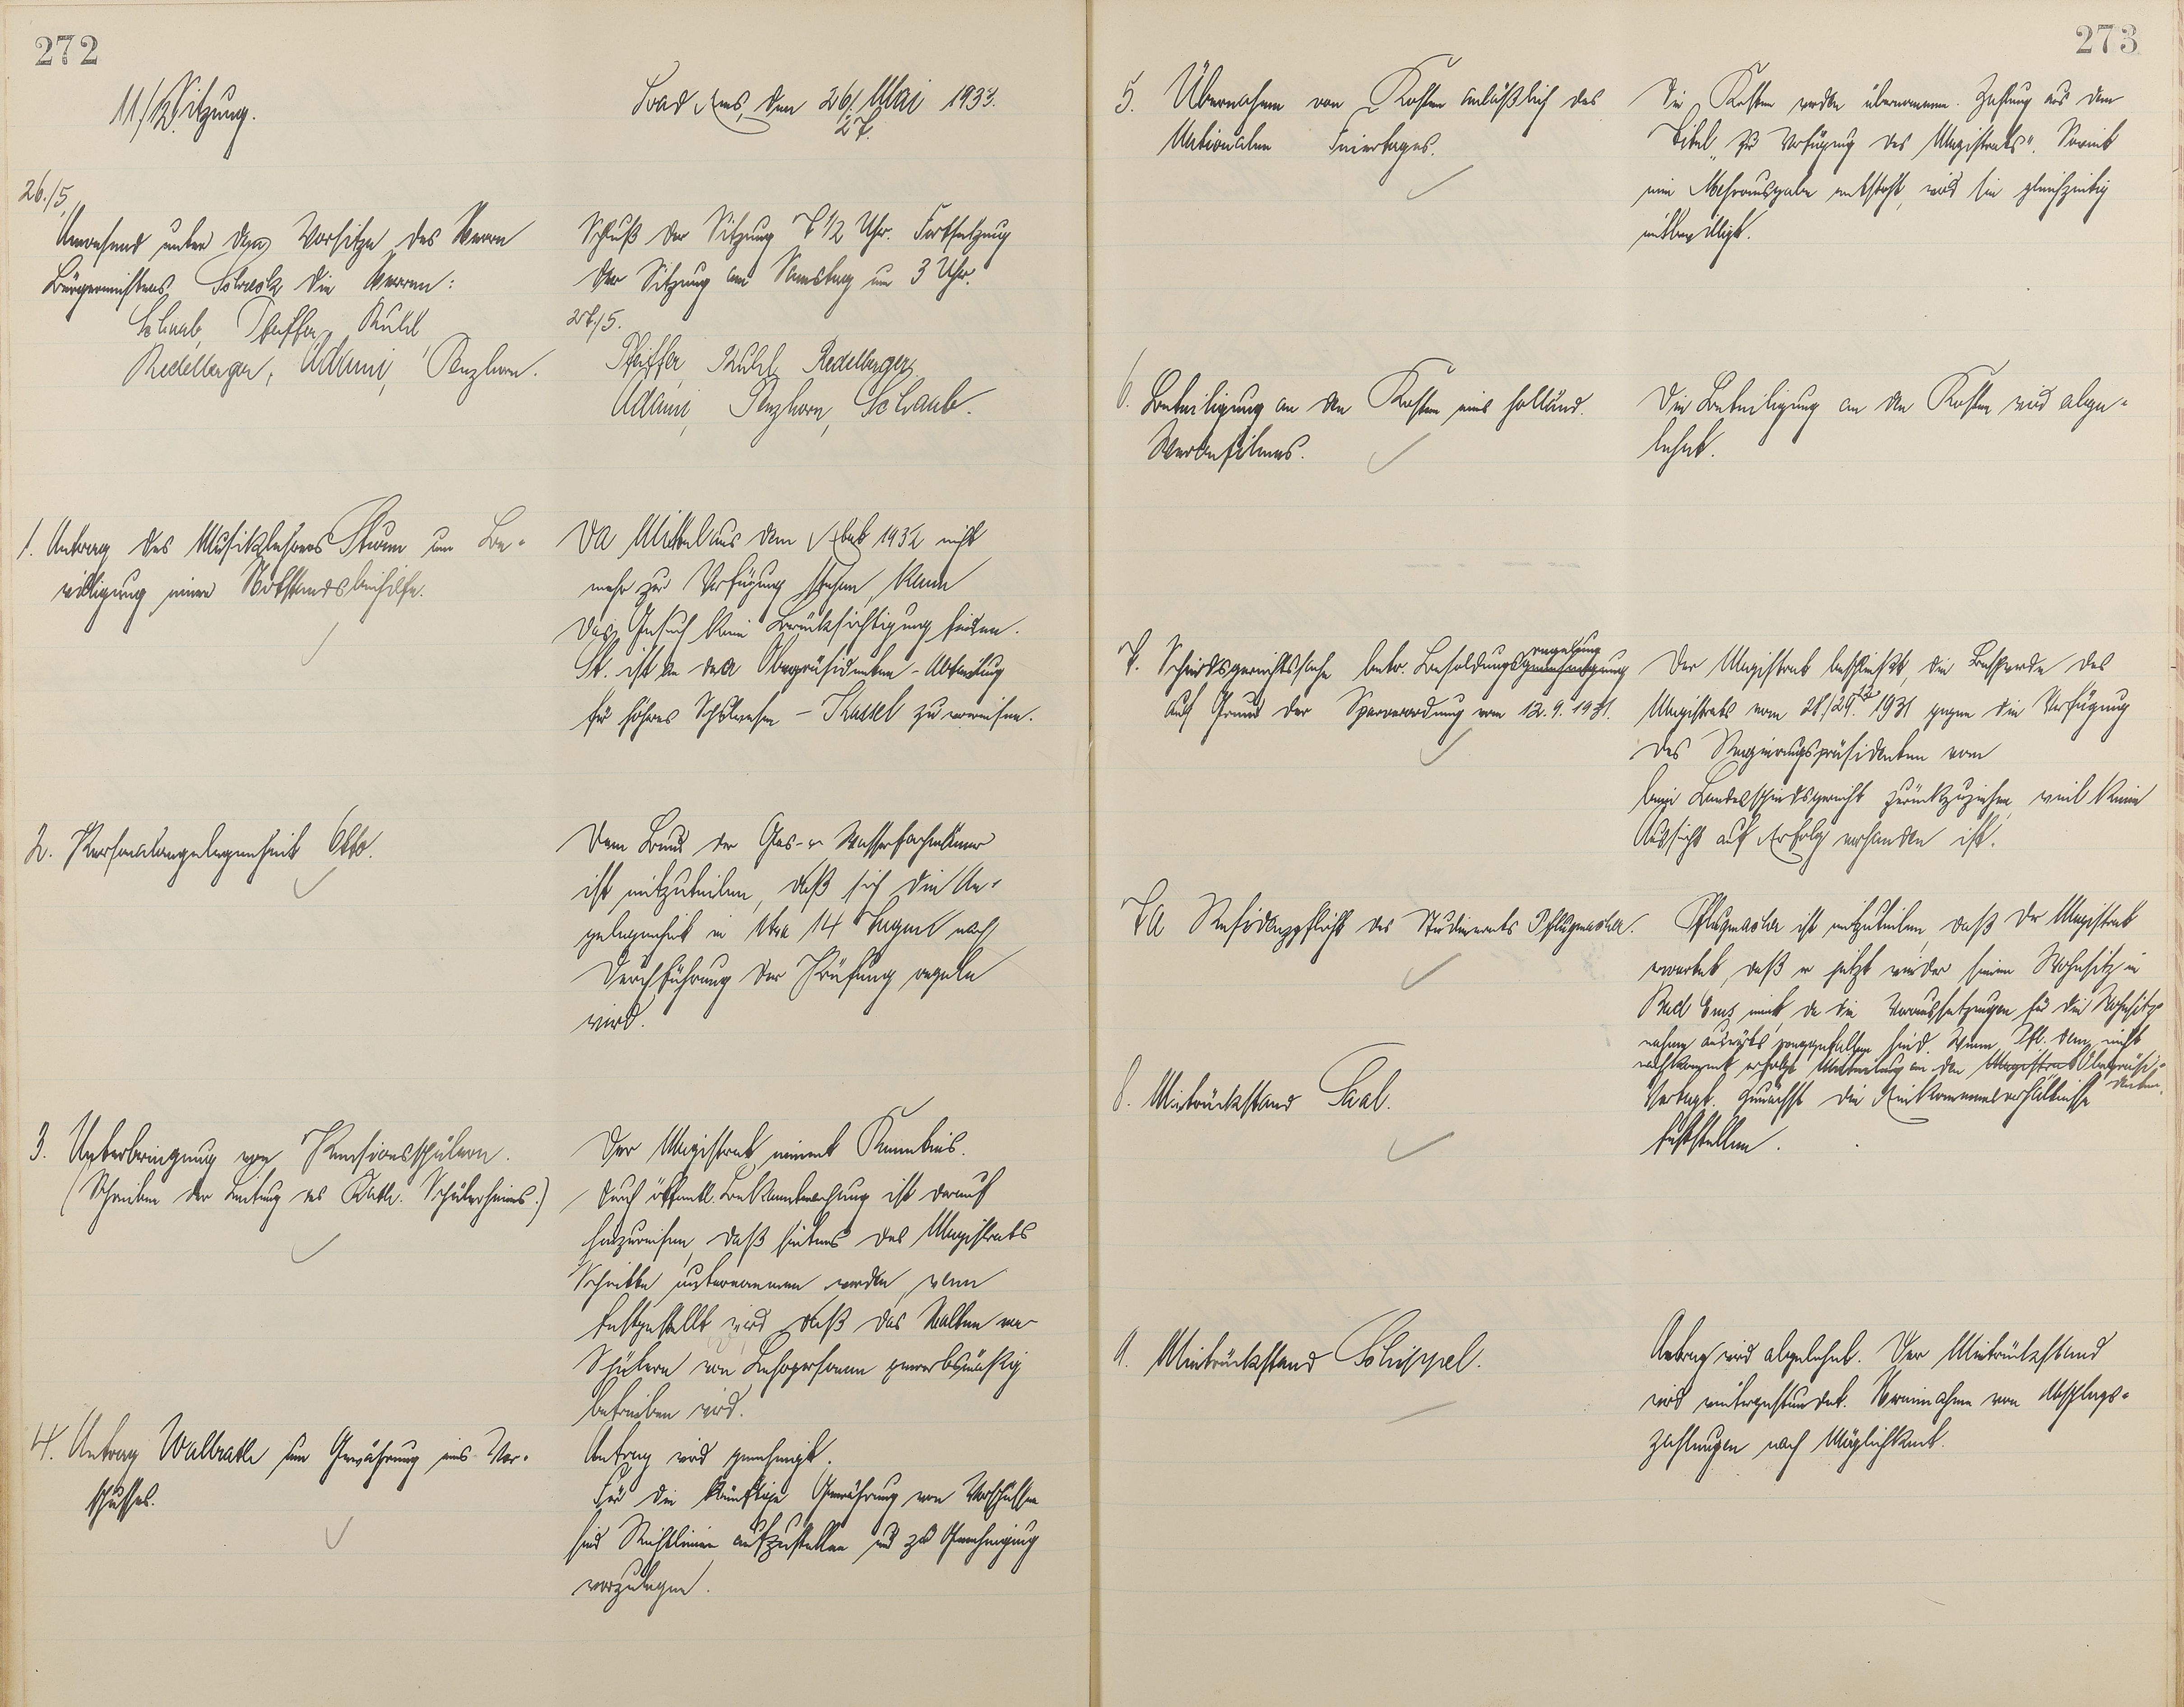 272
11./12. Sitzung.
Bad Ems, den 26./27. Mai 1933.
26./5.
Anwesend unter dem Vorsitze des Herrn
Bürgermeisters Schreck die Herren:
Schaub, Pfeiffer, Kuhl,
Redelberger, Adami, Penzhorn.
Schluß der Sitzung 7 1/2 Uhr. Fortsetzung
der Sitzung am Samstag um 3 Uhr.
27./5.
Pfeiffer, Kuhl, Redelberger,
Adami, Penzhorn, Schaub.
1. Antrag des Musiklehrers Sturm um Be-
willigung einer Notstandsbeihilfe.
Da Mittel aus dem Etat 1932 nicht
mehr zur Verfügung stehen, kann
das Gesuch keine Berücksichtigung finden.
St. ist an den Oberpräsidenten - Abteilung
für höheres Schulwesen - Kassel zu verweisen.
2. Personalangelegenheit Otto.
Dem Bund der Gas- u. Wasserfachmänner
ist mitzuteilen, daß sich die An-
gelegenheit in etwa 14 Tagen nach
Durchführung der Prüfung regeln
wird.
3. Unterbringung von Pensionsschülern.
(Schreiben der Leitung des Kath. Schülerheims.)
Der Magistrat nimmt Kenntnis.
Durch öffentl. Bekanntmachung ist darauf
hinzuweisen, daß seitens des Magistrats
Schritte unternommen werden, wenn
festgestellt wird, daß das Halten von
Schülern von Lehrpersonen gewerbsmäßig
betrieben wird.
4. Antrag Wallrath um Gewährung eines Vor-
schusses.
Antrag wird genehmigt.
Für die künftige Gewährung von Vorschüssen
sind Richtlinien aufzustellen und zur Genehmigung
vorzulegen.
273
5. Übernahme von Kosten anläßlich des
Nationalen Feiertages.
Die Kosten werden übernommen. Zahlung aus dem
Titel „Zur Verfügung des Magistrats". Soweit
eine Mehrausgabe entsteht, wird sie gleichzeitig
mitbewilligt.
6. Beteiligung an den Kosten eines holländ.
Werbefilmes.
Die Beteiligung an den Kosten wird abge-
lehnt.
7. Schiedsgerichtssache betr. Besoldungsregelung
auf Grund der Sparverordnung vom 12.9.1931.
Der Magistrat beschließt, die Beschwerde des
Magistrats vom 28./29. 1931 gegen die Verfügung
des Regierungspräsidenten vom
beim Landesschiedsgericht zurückzuziehen, weil keine
Aussicht auf Erfolg vorhanden ist.
7a Residenzpflicht des Studienrats Pflugmacher.
Pflugmacher ist mitzuteilen, daß der Magistrat
erwartet, daß er jetzt wieder seinen Wohnsitz in
Bad Ems nimmt, da die Voraussetzungen für die Wohnsitz-
nahme auswärts weggefallen sind. Wenn Pfl. dem nicht
nachkommt, erfolgt Mitteilung an den Magistrat Oberpräsi-
denten.
8. Mietrückstand Saal.
Vertagt. Zunächst die Einkommensverhältnisse
feststellen.
9. Mietrückstand Schippel.
Antrag wird abgelehnt. Der Mietrückstand
wird weitergestundet. Vereinnahme von Abschlags-
zahlungen nach Möglichkeit.